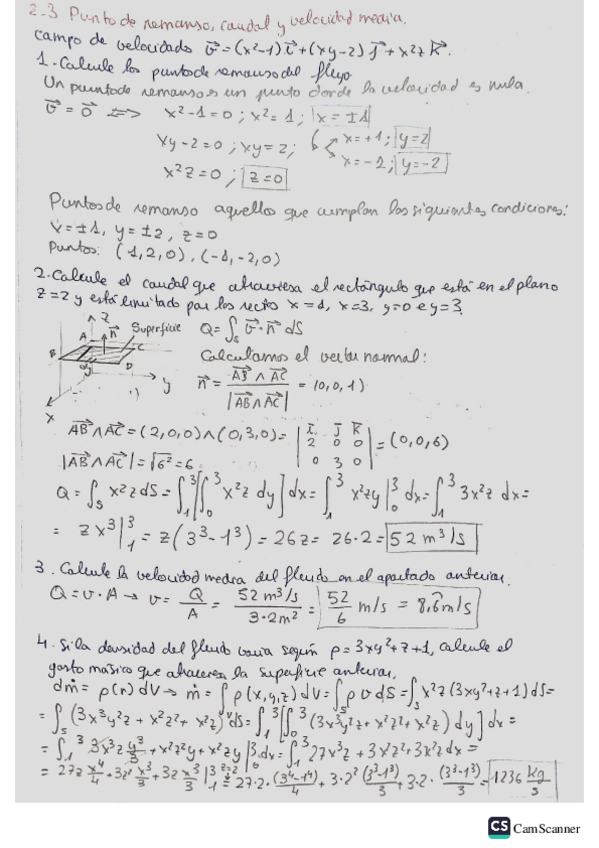 2.3 Punto de remanso, caudal y velocidad media.
Campo de velocidades v⃗ = (x²-1) i⃗ + (xy-2) j⃗ + x²z k⃗.
1. Calcule los puntos de remanso del flujo
Un punto de remanso es un punto donde la velocidad es nula.
v⃗ = 0⃗ ⟺ x²-1=0 ; x²=1 ; x=±1
xy-2=0 ; xy=2 ; x=+1 ; y=2
x=-2 ; y=-2
x²z=0 ; z=0
Puntos de remanso aquellos que cumplan las siguientes condiciones:
x=±1, y=±2, z=0
Puntos: (1,2,0), (-1,-2,0)
2. Calcule el caudal que atraviesa el rectángulo que está en el plano
z=2 y está limitado por las rectas x=1, x=3, y=0 e y=3.
z
n⃗ Superficie
A
C
B
D
y
x
Q=∫s v⃗·n⃗ dS
Calculamos el vector normal:
n⃗ = AB⃗ ∧ AC⃗ / |AB⃗ ∧ AC⃗| = (0,0,1)
AB⃗ ∧ AC⃗ = (2,0,0)∧(0,3,0) = |i⃗ j⃗ k⃗
2 0 0
0 3 0| = (0,0,6)
|AB⃗ ∧ AC⃗| = √6² = 6
Q=∫s x²z dS = ∫₁³[∫₀³ x²z dy] dx = ∫₁³ x²zy|₀³ dx = ∫₁³ 3x²z dx =
= zx³|₁³ = z(3³-1³) = 26z = 26·2 = 52 m³/s
3. Calcule la velocidad media del fluido en el apartado anterior.
Q=v·A → v = Q/A = 52 m³/s / 3·2m² = 52/6 m/s = 8,6̂ m/s
4. Si la densidad del fluido varia según ρ=3xy²+z+1, calcule el
gasto másico que atraviesa la superficie anterior.
dṁ = ρ(r) dV → ṁ = ∫ρ(x,y,z) dV = ∫ρ v dS = ∫s x²z(3xy²+z+1) dS =
= ∫s (3x³y²z + x²z² + x²z) dS = ∫₁³[∫₀³ (3x³y²z + x²z² + x²z) dy] dx =
= ∫₁³ 3x³z y³/3 + x²z²y + x²zy|₀³ dx = ∫₁³ 27x³z + 3x²z² + 3x²z dx =
= 27z x⁴/4 + 3z² x³/3 + 3z x³/3 |₁³ z=2 = 27·2·(3⁴-1⁴)/4 + 3·2² (3³-1³)/3 + 3·2·(3³-1³)/3 = 1236 kg/s
CS CamScanner